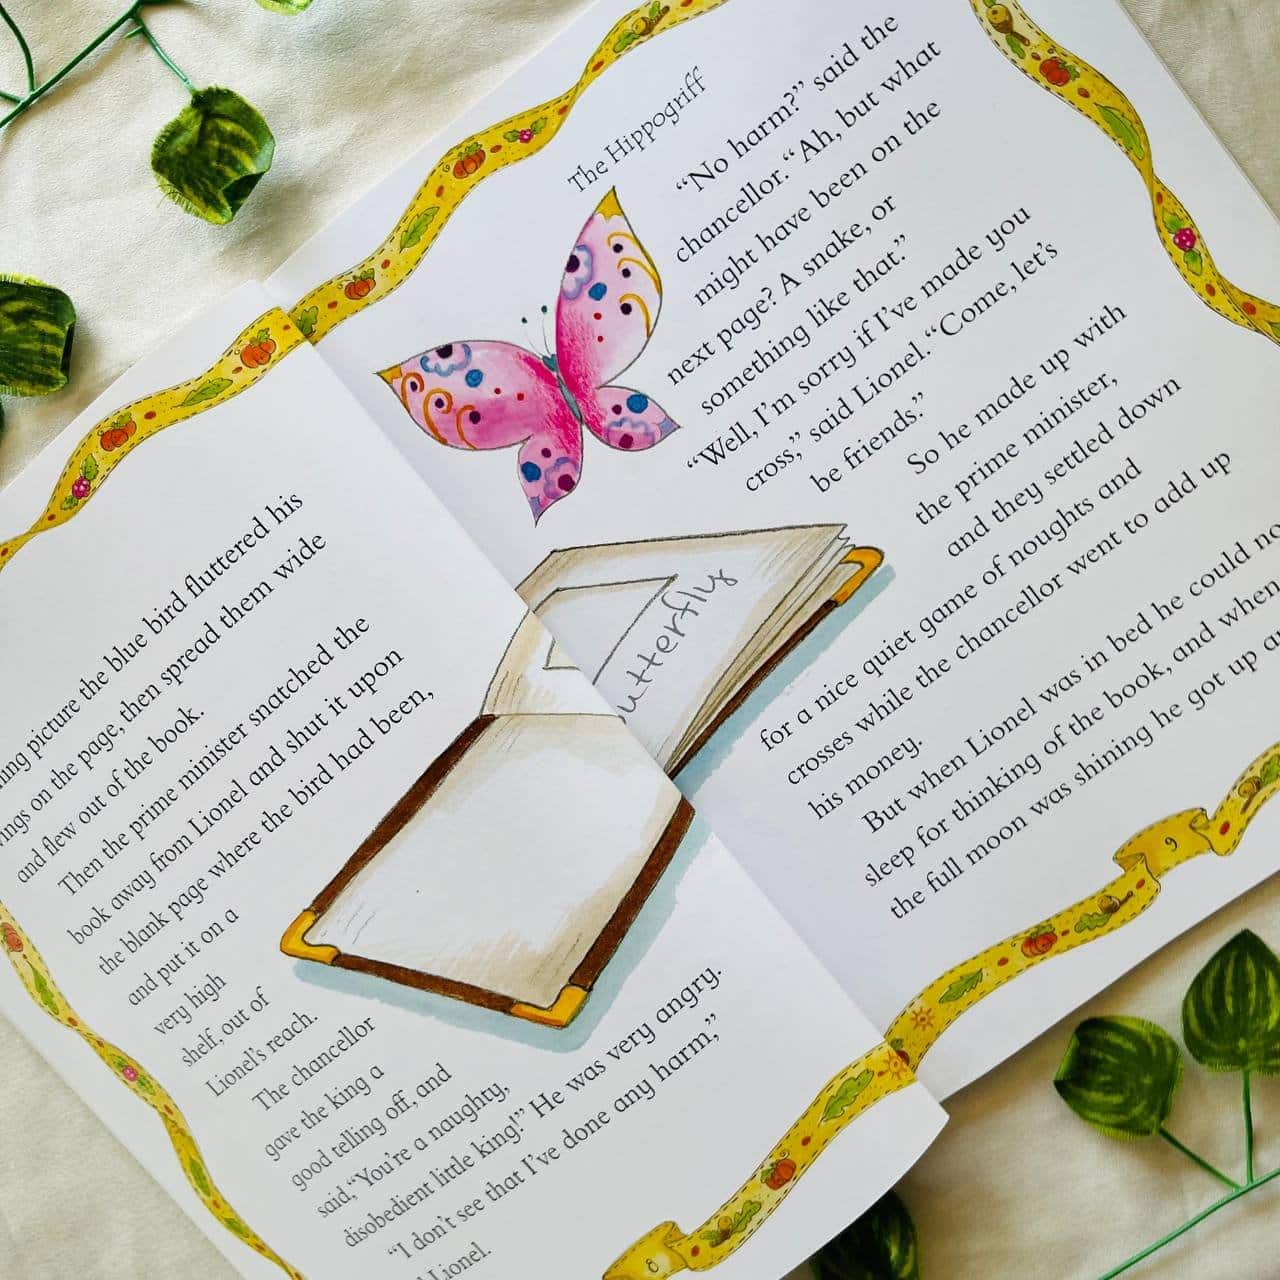 picture the blue bird fluttered his
on the page, then spread them wide
and flew out of the book.
Then the prime minister snatched the
book away from Lionel and shut it upon
the blank page where the bird had been,
and put it on a
very high
shelf, out of
Lionel's reach.
The chancellor
gave the king a
good telling off, and
said, “You're a naughty,
disobedient little king!” He was very angry.
“I don't see that I've done any harm,”
Lionel.
8
The Hippogriff
“No harm?” said the
chancellor. “Ah, but what
might have been on the
next page? A snake, or
something like that.”
“Well, I'm sorry if I've made you
cross,” said Lionel. “Come, let's
be friends.”
So he made up with
the prime minister,
and they settled down
for a nice quiet game of noughts and
crosses while the chancellor went to add up
his money.
But when Lionel was in bed he could
sleep for thinking of the book, and when
the full moon was shining he got up
utterfly
9